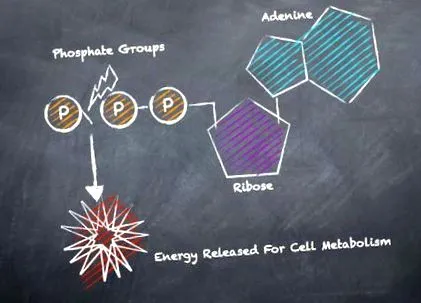 Adenine
Phosphate Groups
P P P
Ribose
Energy Released For Cell Metabolism